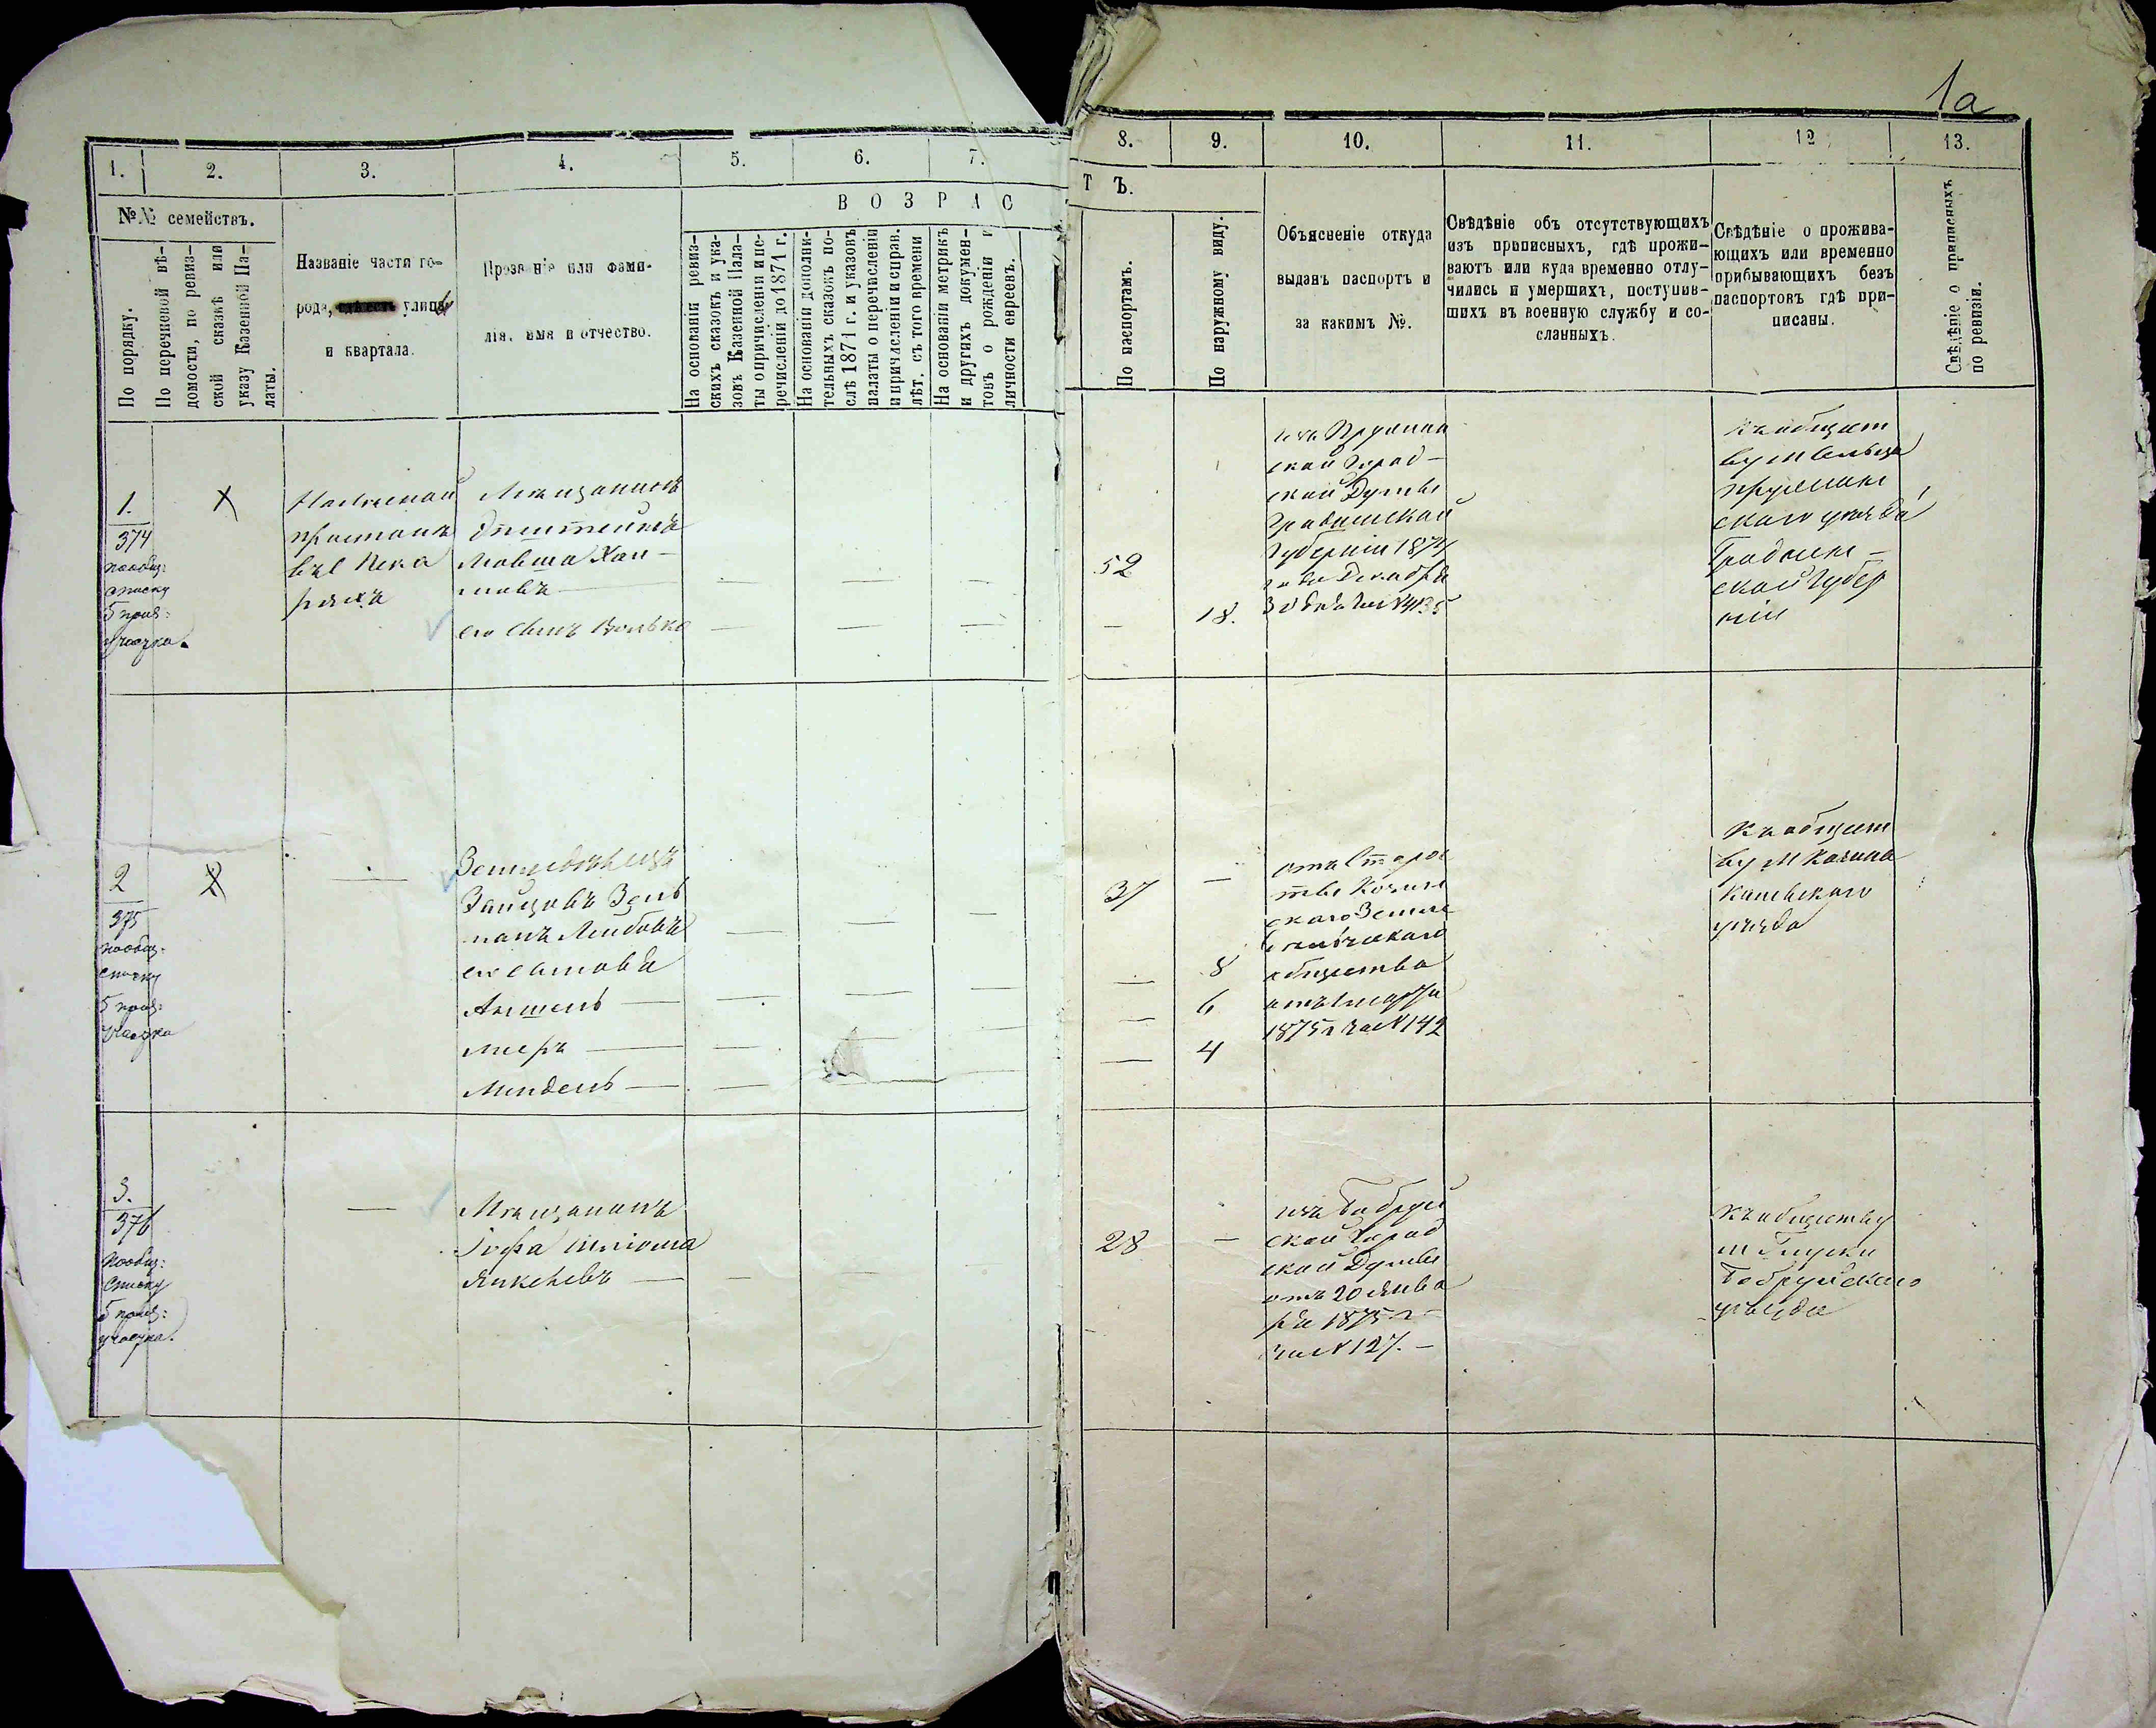 1а
1.
2.
3.
4.
5.
6.
7.
8.
9.
10.
11.
12
13.
№№ семействъ.
По порядку.
По перечневой вѣ-
домости, по ревиз-
ской сказкѣ или
указу Казенной Па-
латы.
Названіе части го-
рода, улицы
и квартала.
Прозваніе или фами-
лія, имя и отчество.
ВОЗРАС
На основаніи ревиз-
скихъ сказокъ и ука-
зовъ Казенной Пала-
ты о причисленіи и пе-
речисленіи до 1871 г.
На основаніи дополни-
тельныхъ сказокъ по-
слѣ 1871 г. и указовъ
палаты о перечисленіи
и причисленіи и справ.
лѣт. съ того времени
На основаніи метрикъ
и другихъ докумен-
товъ о рожденіи и
личности евреевъ.
ТЪ.
По паспортамъ.
По наружному виду.
Объясненіе откуда
выданъ паспортъ и
за какимъ №.
Свѣдѣніе объ отсутствующихъ
изъ приписныхъ, гдѣ прожи-
ваютъ или куда временно отлу-
чились и умершихъ, поступив-
шихъ въ военную службу и со-
сланныхъ.
Свѣдѣніе о прожива-
ющихъ или временно
прибывающихъ безъ
паспортовъ гдѣ при-
писаны.
Свѣдѣніе о приписныхъ
по ревизіи.
1.
374
пообщ:
списку
5 приз:
участка.
Х
Мѣщанинъ
Эпштейнъ
Мовша Хаи-
мовъ —
его сынъ Волько
52
18.
изъ Пружан
ской Город-
ской Думы
Гродненской
Губерніи 1874
года Декабря
30 дня за №4135
Къ общест
ву м Сельца
Пружанс
скаго уѣзда
Гродненс-
ской Губер
ніи
2
375
пообщ:
списку
5 приз:
участка
Земледѣлецъ
Зайцовъ Зель
манъ Лейбовъ
его сыновья
Аншель —
Меръ —
Мендель —
37
8
6
4
отъ Старос
тъ
скаго Земле
дѣльческаго
общества
отъ Марта
1875 г за №142
Къ общест
ву м
Каневскаго
уѣзда
3.
376
пообщ:
списку
5 приз:
участка.
Мѣщанинъ
Шліома
Янкелевъ —
28
изъ Бобруй
ской Город
ской Думы
отъ 20 Янва
ря 1875 г
за №127. —
Къ обществу
м Глуски
Бобруйскаго
уѣзда